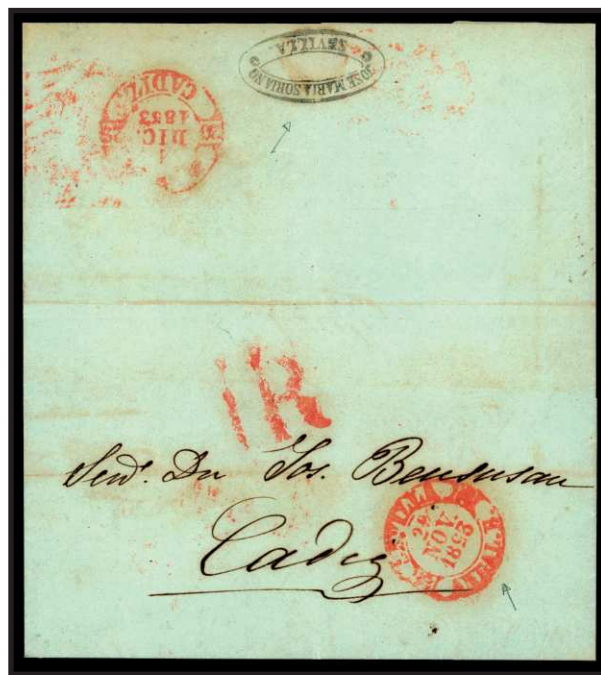 JOSE MARIA SORIANO
SEVILLA.
CADIZ
DIC.
1853
1R
Señ.r Dn Jos. Bensusan
Cadiz
NOV.
1853